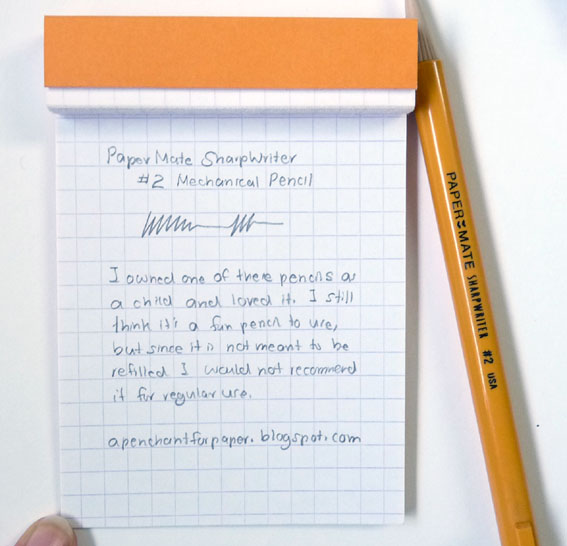 Paper Mate SharpWriter
#2 Mechanical Pencil
I owned one of these pencils as
a child and loved it. I still
think it's a fun pencil to use,
but since it is not meant to be
refilled I would not recommend
it for regular use.
apenchantforpaper.blogspot.com
PAPER MATE SHARPWRITER #2 USA